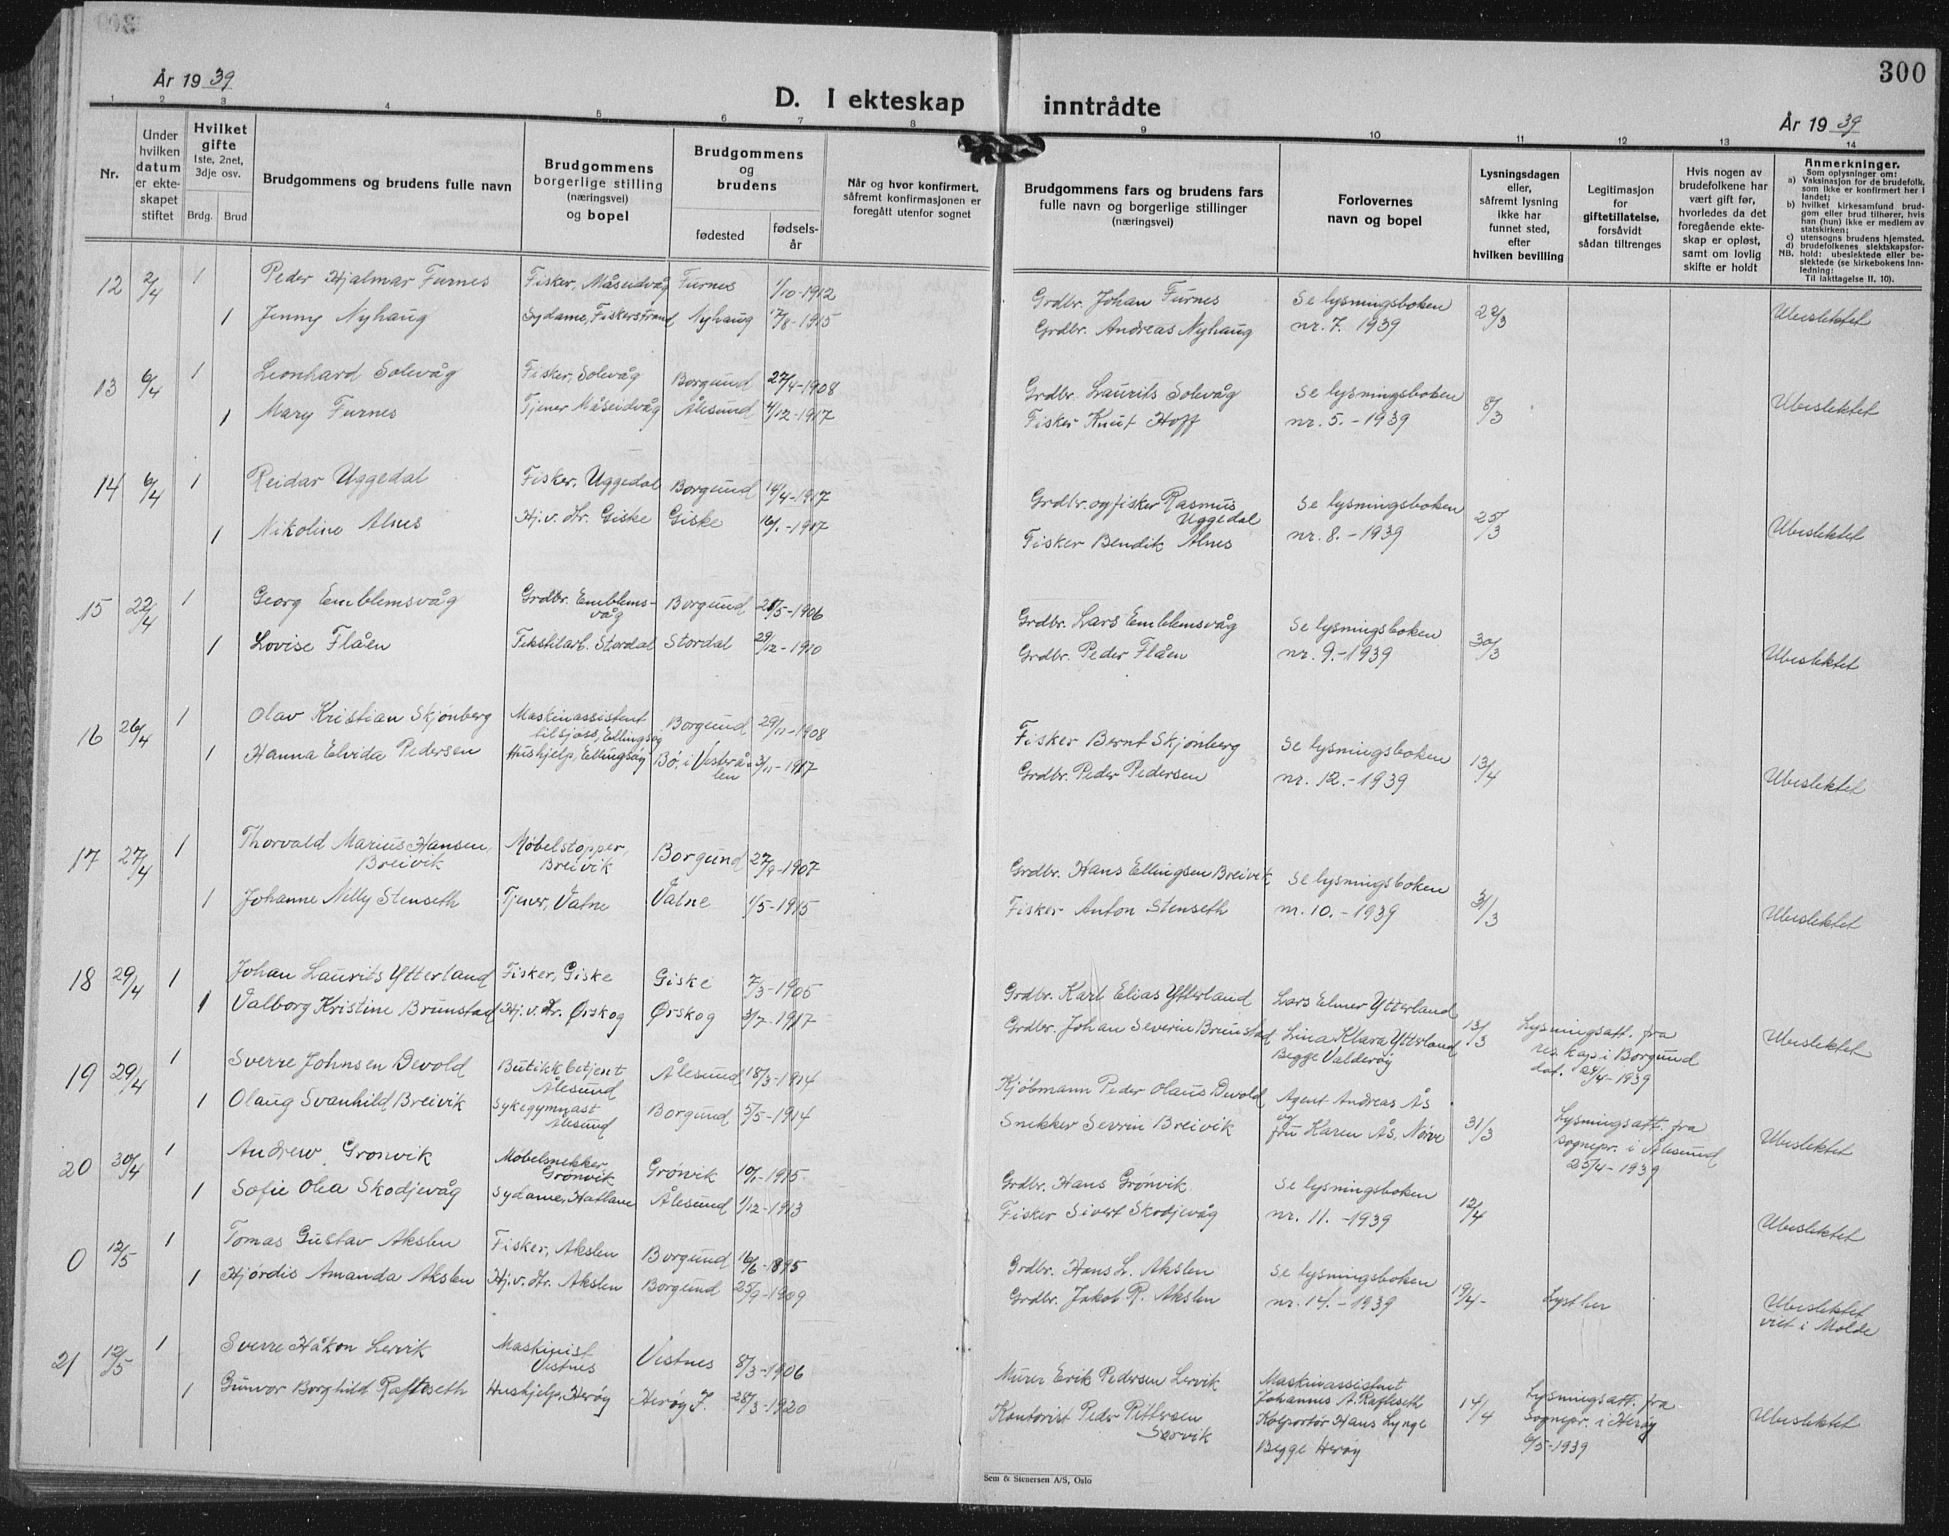 300
År 1939
D. I ekteskap inntrådte
År 1939
1 2 3 4 5 6 7 8 9 10 11 12 13 14
Nr.
Under hvilken datum er ekteskapet stiftet
Hvilket gifte
1ste, 2net, 3dje osv.
Brdg. Brud
Brudgommens og brudens fulle navn
Brudgommens borgerlige stilling (næringsvei) og bopel
Brudgommens og brudens
fødested
fødselsår
Når og hvor konfirmert, såfremt konfirmasjonen er foregått utenfor sognet
Brudgommens fars og brudens fars fulle navn og borgerlige stillinger (næringsvei)
Forlovernes navn og bopel
Lysningsdagen eller, såfremt lysning ikke har funnet sted, efter hvilken bevilling
Legitimasjon for giftetillatelse, forsåvidt sådan tiltrenges
Hvis nogen av brudefolkene har vært gift før, hvorledes da det foregående ekteskap er opløst, samt om lovlig skifte er holdt
Anmerkninger.
Som oplysninger om:
a) Vaksinasjon for de brudefolk, som ikke er konfirmert her i landet;
b) hvilket kirkesamfund brudgom eller brud tilhører, hvis han (hun) ikke er medlem av statskirken;
c) utensogns brudens hjemsted.
d) brudefolkenes slektskapsforhold: ubeslektede eller beslektede (se kirkebokens Innledning:
NB.
Til Iakttagelse II. 10).
12 2/4 1 Peder Hjalmar Furnes Fisker, Måseidvåg Furnes 1/10-1912 Grdbr. Johan Furnes Se lysningsboken 22/3 Ubeslektet
1 Jenny Nyhaug Sydame, Fiskerstrand Nyhaug 17/8-1915 Grdbr. Andreas Nyhaug nr. 7. 1939
13 6/4 1 Leonhard Solevåg Fisker, Solevåg Borgund 27/4-1908 Grdbr. Laurits Solevåg Se lysningsboken 8/3 Ubeslektet
1 Mary Furnes Tjener Måseidvåg Ålesund 4/12-1917 Fisker Knut Hoff nr. 5.-1939
14 6/4 1 Reidar Uggedal Fisker, Uggedal Borgund 14/4-1917 Grdbr. og fisker Rasmus Uggedal Se lysningsboken 25/3 Ubeslektet
1 Nikoline Alnes Hj. v. Hr. Giske Giske -1917 Fisker Bendik Alnes nr. 8.-1939
15 22/4 1 Georg Emblemsvåg Grdbr. Emblemsvåg Borgund 21/5-1906 Grdbr. Lars Emblemsvåg Se lysningsboken 30/3 Ubeslektet
1 Lovise Flåen Tekstilarb. Stordal Stordal 29/12-1910 Grdbr. Peder Flåen nr. 9.-1939
16 26/4 1 Olav Kristian Skjønberg Maskinassistent tilsjøss, Ellingsøy Borgund 29/11-1908 Fisker Bernt Skjønberg Se lysningsboken 13/4 Ubeslektet
1 Hanna Elvida Pedersen Hushjelp, Ellingsøy Bø, i Vesterålen 3/11-1917 Grdbr. Peder Pedersen nr. 12.-1939
17 27/4 1 Thorvald Marius Hansen, Breivik Møbelstopper, Breivik Borgund 27/9-1907 Grdbr. Hans Ellingsen Breivik Se lysningsboken 31/3 Ubeslektet
1 Johanne Nelly Stenseth Tjener, Vatne Vatne 1/5-1915 Fisker Anton Stenseth nr. 10.-1939
18 29/4 1 Johan Laurits Ytterland Fisker, Giske Giske 7/3-1905 Grdbr. Karl Elias Ytterland Lars Elmer Ytterland 13/3 Lysningsatt. fra res. kap i Borgund dat. 24/4-1939 Ubeslektet
1 Valborg Kristine Brunstad Hj. v. Hr. Ørskog Ørskog 3/7-1917 Grdbr. Johan Severin Brunstad Lina Klara Ytterland Begge Valderøy
19 29/4 1 Sverre Johnsen Devold Butikkbetjent Ålesund Ålesund 18/3-1914 Kjøbmann Peder Olaus Devold Agent Andreas Ås og 31/3 Lysningsatt. fra sognepr. i Ålesund 25/4-1939 Ubeslektet
1 Olaug Svanhild Breivik Sykegymnast Ålesund Borgund 5/5-1914 Snekker Severin Breivik fru Karen Ås, Nørve
20 30/4 1 Andrew Grønvik Møbelsnekker Grønvik Grønvik 10/1-1915 Grdbr. Hans Grønvik Se lysningsboken 12/4 Ubeslektet
1 Sofie Olea Skodjevåg Sydame, Hatlane Ålesund 1/12-1913 Fisker Sivert Skodjevåg nr. 11.-1939
0 12/5 1 Tomas Gustav Akslen Fisker, Akslen Borgund 16/6-1895 Grdbr. Hans L. Akslen Se lysningsboken 19/4- Lyst her Ubeslektet viet i Molde
1 Hjørdis Amanda Akslen Hj. v. Hr. Akslen Borgund 25/9-1909 Grdbr. Jakob R. Akslen nr. 14.-1939
21 12/5 1 Sverre Håkon Lervik Maskinist Vestnes Vestnes 8/3-1906 Murer Erik Pedersen Lervik Maskinassistent Johannes A. Rafteseth 14/4 Lysningsatt. fra Sognepr. i Herøy 6/5-1939 Ubeslektet
1 Gunvor Borghild Rafteseth Hushjelp, Herøy Herøy F. 28/3-1920 Kontorist Peder Pettersen Kolportør Hans Lynge Begge Herøy
Sem & Stenersen A/S, Oslo